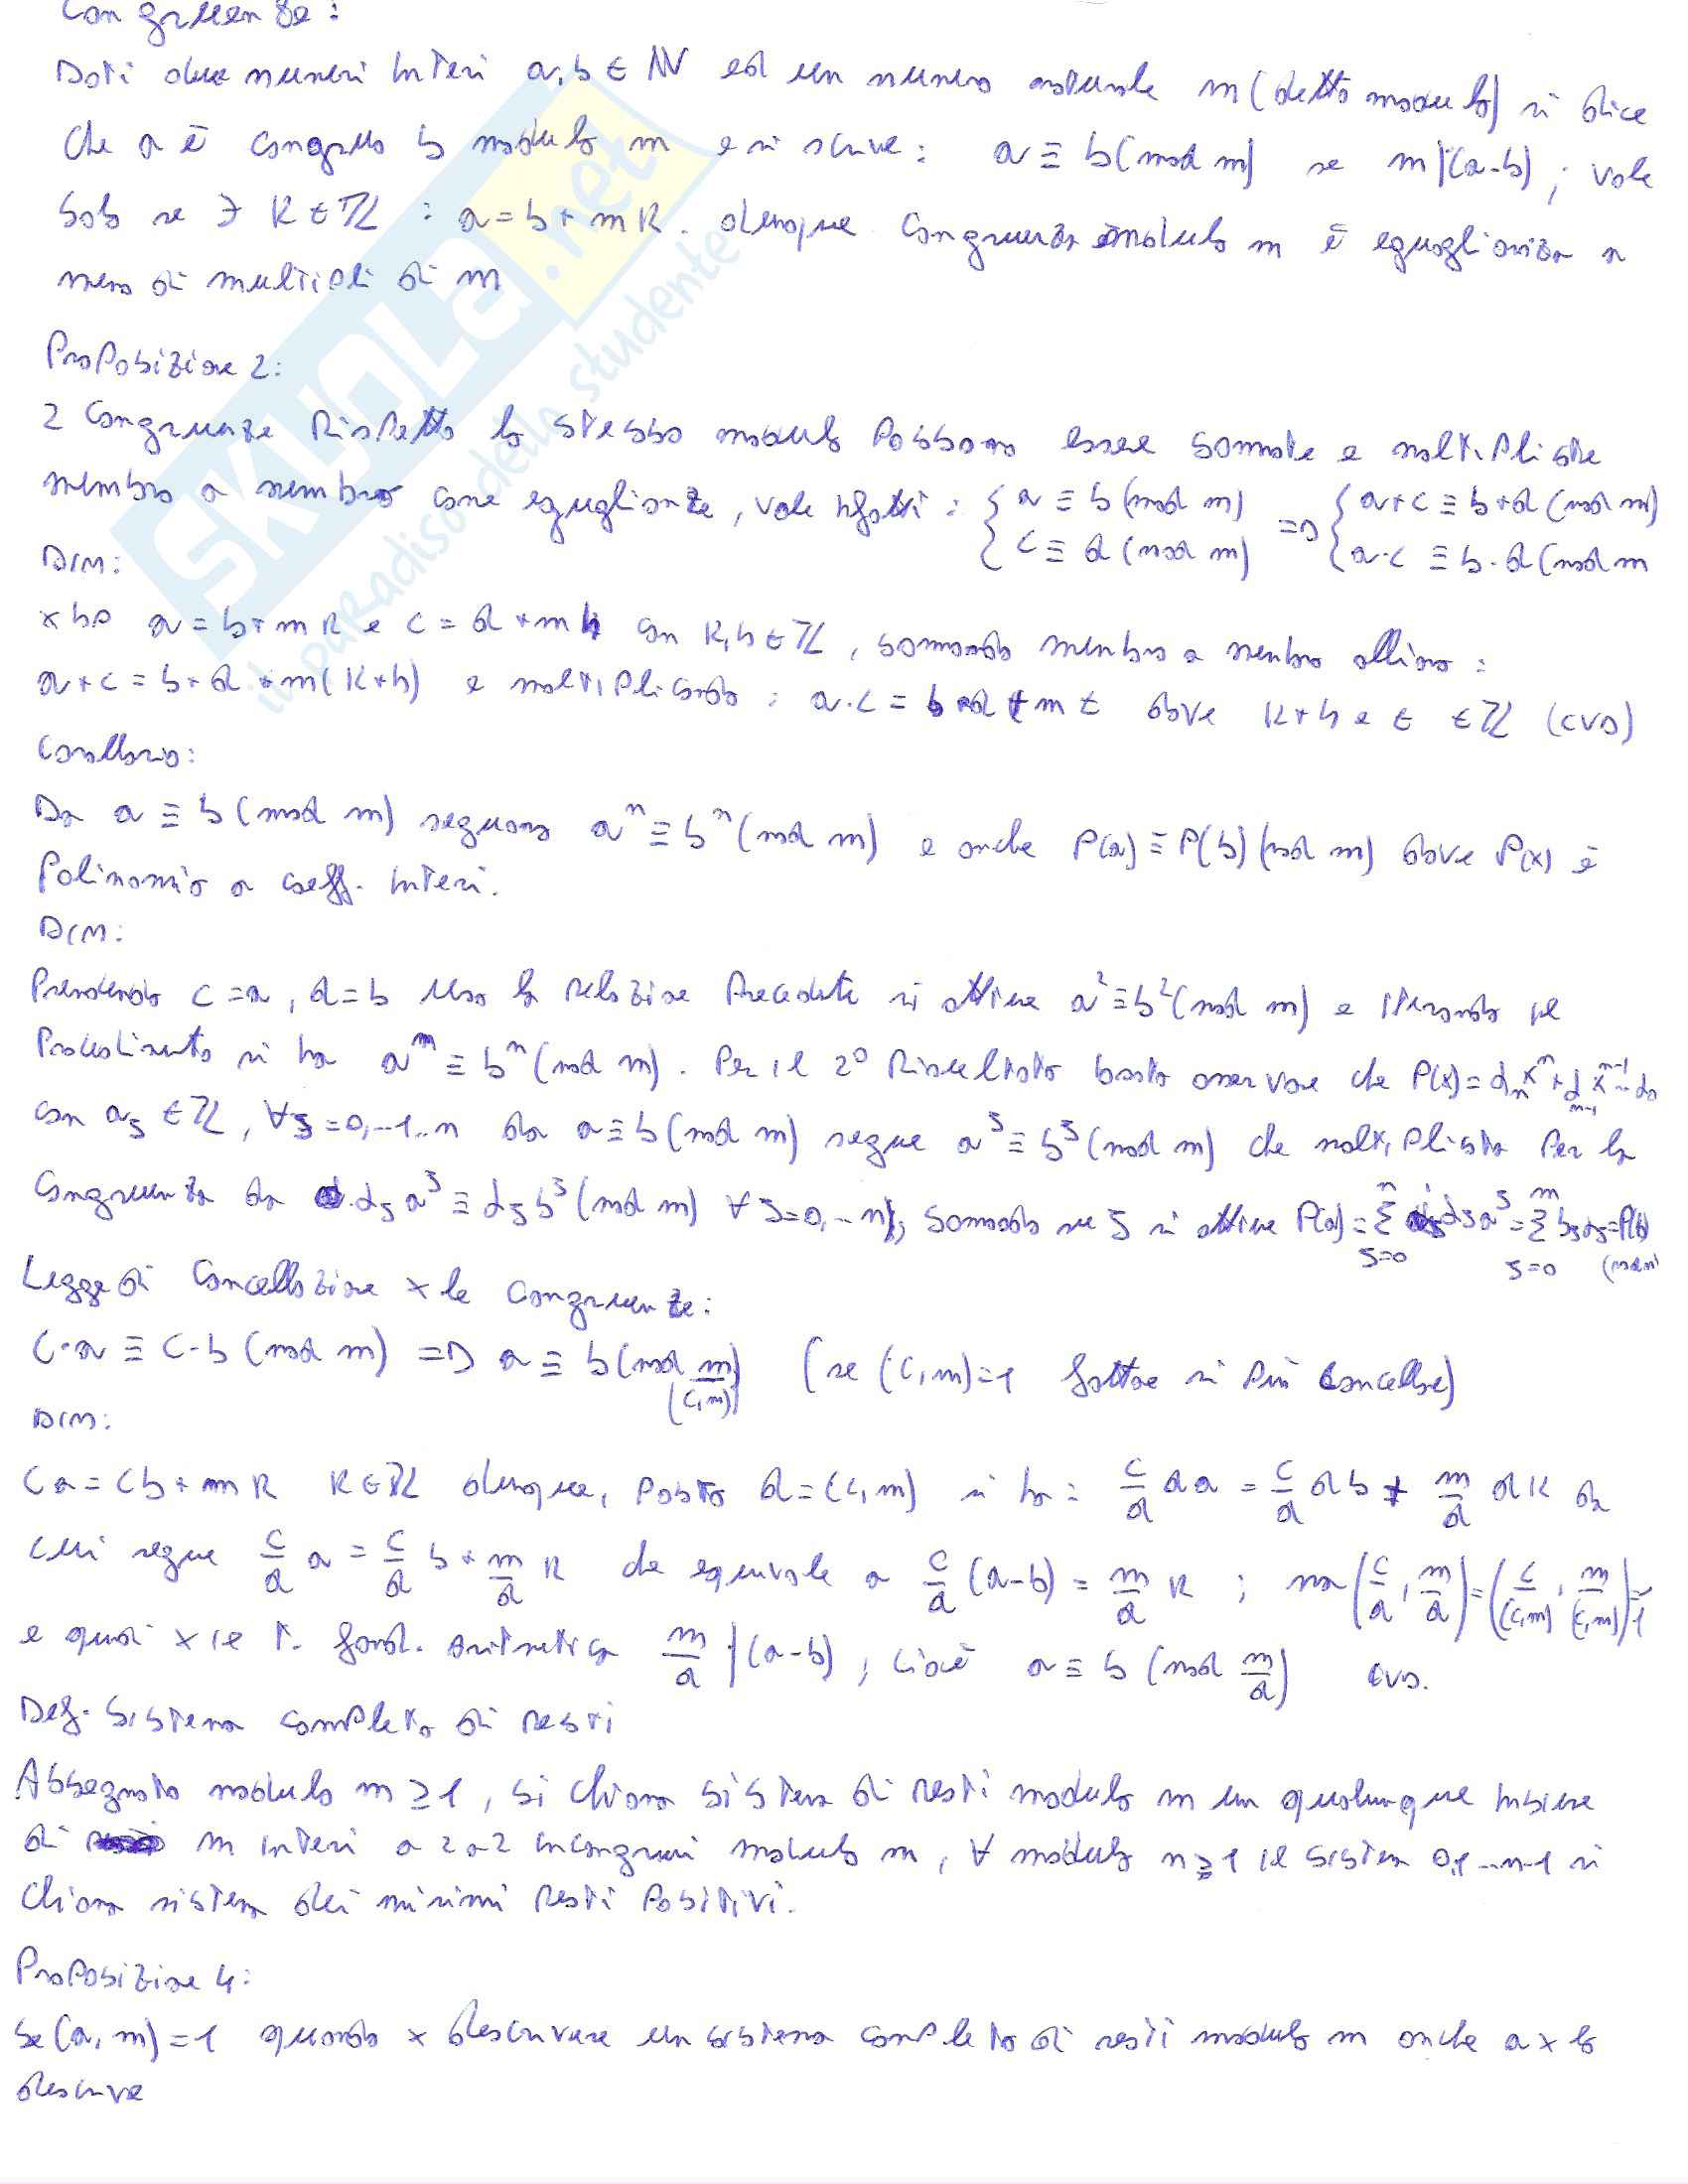 Congruenze:
Dati due numeri interi a,b ∈ N ed un numero naturale m (detto modulo) si dice
che a è congruo b modulo m e si scrive: a ≡ b (mod m) se m|(a-b); vale
solo se ∃ K ∈ Z : a = b + mK. dunque congruenza modulo m è eguaglianza a
meno di multipli di m
Proposizione 2:
2 congruenze rispetto lo stesso modulo possono essere sommate e moltiplicate
membro a membro come eguaglianze, vale infatti: { a ≡ b (mod m) => { a+c ≡ b+d (mod m)
{ c ≡ d (mod m) { a·c ≡ b·d (mod m
Dim:
x hp a = b + mK e c = d + mh con K,h ∈ Z, sommando membro a membro allora:
a+c = b+d+m(K+h) e moltiplicando: a·c = b·d + mt dove K+h e t ∈ Z (CVD)
Corollario:
Da a ≡ b (mod m) seguono aⁿ ≡ bⁿ (mod m) e anche P(a) ≡ P(b) (mod m) dove P(x) è
polinomio a coeff. interi.
Dim:
Prendendo c=a, d=b uso la relazione precedente si ottiene a² ≡ b² (mod m) e iterando il
procedimento si ha aⁿ ≡ bⁿ (mod m). Per il 2° risultato basta osservare che P(x) = dₙxⁿ + d x ⁿ⁻¹ -- d₀
con aⱼ ∈ Z, ∀j=0,-1..n da a ≡ b (mod m) segue aʲ ≡ bʲ (mod m) che moltiplicata per la
congruenza da dⱼaʲ ≡ dⱼbʲ (mod m) ∀j=0,..n, sommando se j si ottiene P(a) = Σ dⱼaʲ = Σ bⱼdⱼ = P(b)
j=0 j=0 (mod m)
Legge di cancellazione x le congruenze:
C·a ≡ C·b (mod m) => a ≡ b (mod m/(c,m)) (se (c,m)=1 fattore si può cancellare)
Dim:
Ca = Cb + mK K ∈ Z dunque, posto d=(c,m) si ha: c/d da = c/d db + m/d dK da
cui segue c/d a = c/d b + m/d K che equivale a c/d (a-b) = m/d K ; ma (c/d, m/d) = (c/(c,m), m/(c,m)) = 1
e quindi x il T. fond. aritmetica m/d |(a-b), cioè a ≡ b (mod m/d) CVD.
Def. Sistema completo di resti
Assegnato modulo m ≥ 1, si chiama sistema di resti modulo m un qualunque insieme
di m interi a 2 a 2 incongrui modulo m, ∀ modulo n ≥ 1 il sistema 0,1...n-1 si
chiama sistema dei minimi resti positivi.
Proposizione 4:
Se (a,m)=1 quando x descrivere un sistema completo di resti modulo m anche ax lo
descrive
SKUOLA.net
il paradiso dello studente